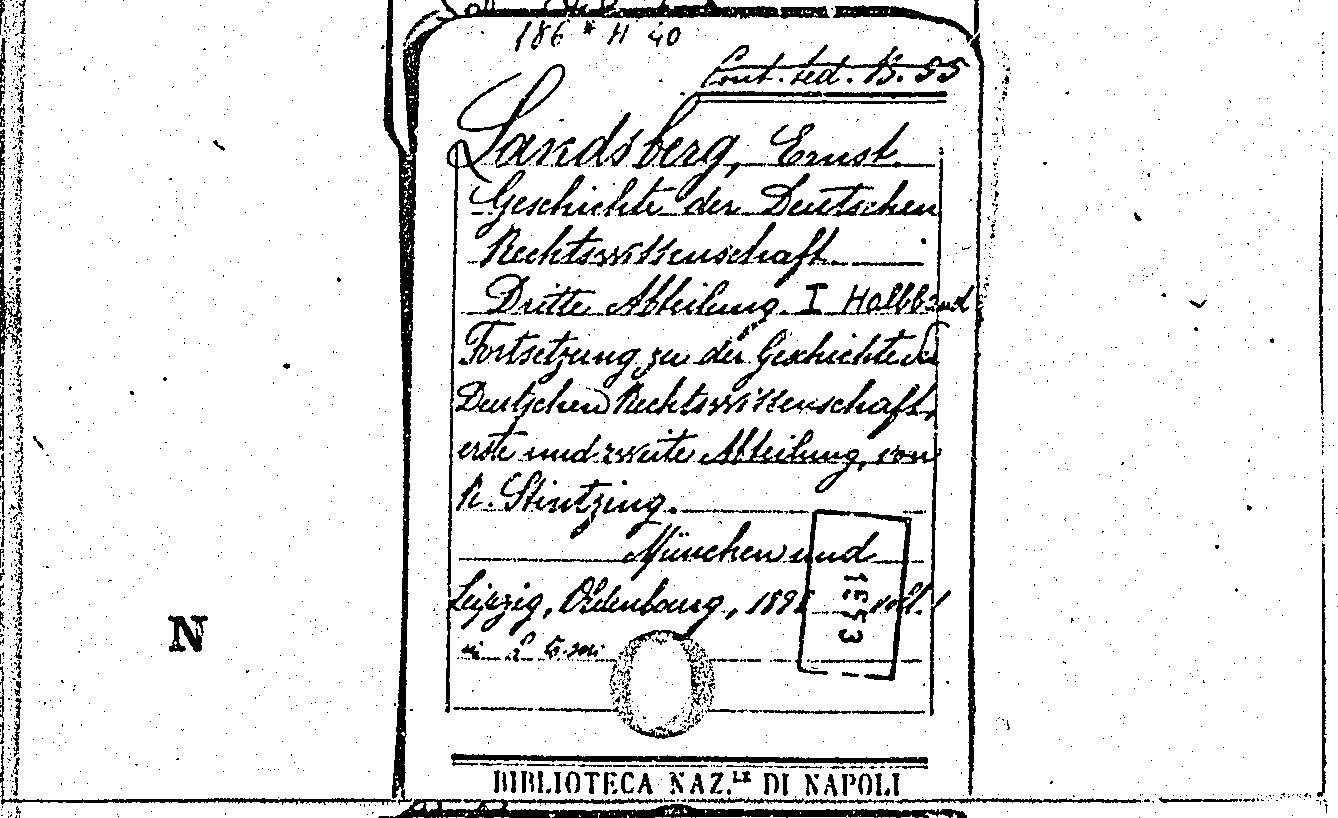 186 * H 40
Cont. ted. B. 55
Landsberg, Ernst.
Geschichte der Deutschen
Rechtswissenschaft
Dritte Abteilung. I Halbband
Fortsetzung zu der Geschichte der
Deutschen Rechtswissenschaft,
erste und zweite Abteilung, von
R. Stintzing.
München und
Leipzig, Oldenbourg, 1898 vol. 1
in 2 t. in
1553
N
BIBLIOTECA NAZ.LE DI NAPOLI